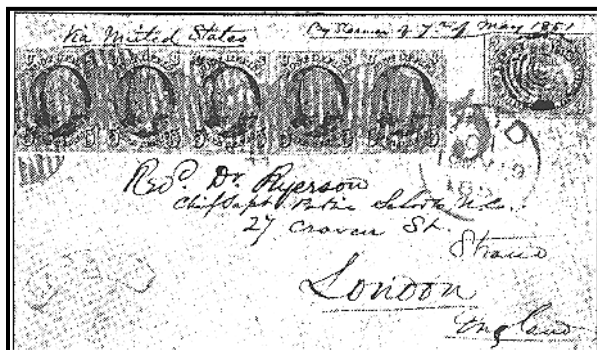 Via United States
By Steamer of 7th of May 1851
5 5 5 5 5 5 5 5 5 5
Revd. Dr. Ryerson
Chief Supt. Public Schools U.C.
27 Craven St.
Strand
London
England